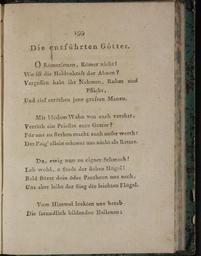 199
Die entführten Götter.
O Römerinnen, Römer nicht!
Wo ist die Heldenkraft der Ahnen?
Vergessen habt ihr Nahmen, Ruhm und
Pflicht,
Und tief entehrt jene großen Manen.
Mit blödem Wahn von euch verehrt,
Verrieth ein Priester eure Götter?
Für uns zu sterben macht auch unser werth:
Der Feig' allein erkennt uns nicht als Retter.
Da, ewig nun zu eigner Schmach!
Leb wohl, o Stadt der sieben Hügel!
Bald stürzt dein ödes Pantheon uns nach,
Uns aber leiht der Sieg die leichten Flügel.
Vom Himmel lockten uns herab
Die freundlich bildenden Hellenen: